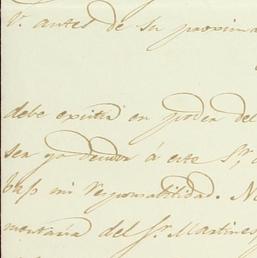 V. antes de su proxima
debe existir en poder del
sea yo deudor á este Sr.
bajo mi responsabilidad. No
mentaria del Sr. Martinez